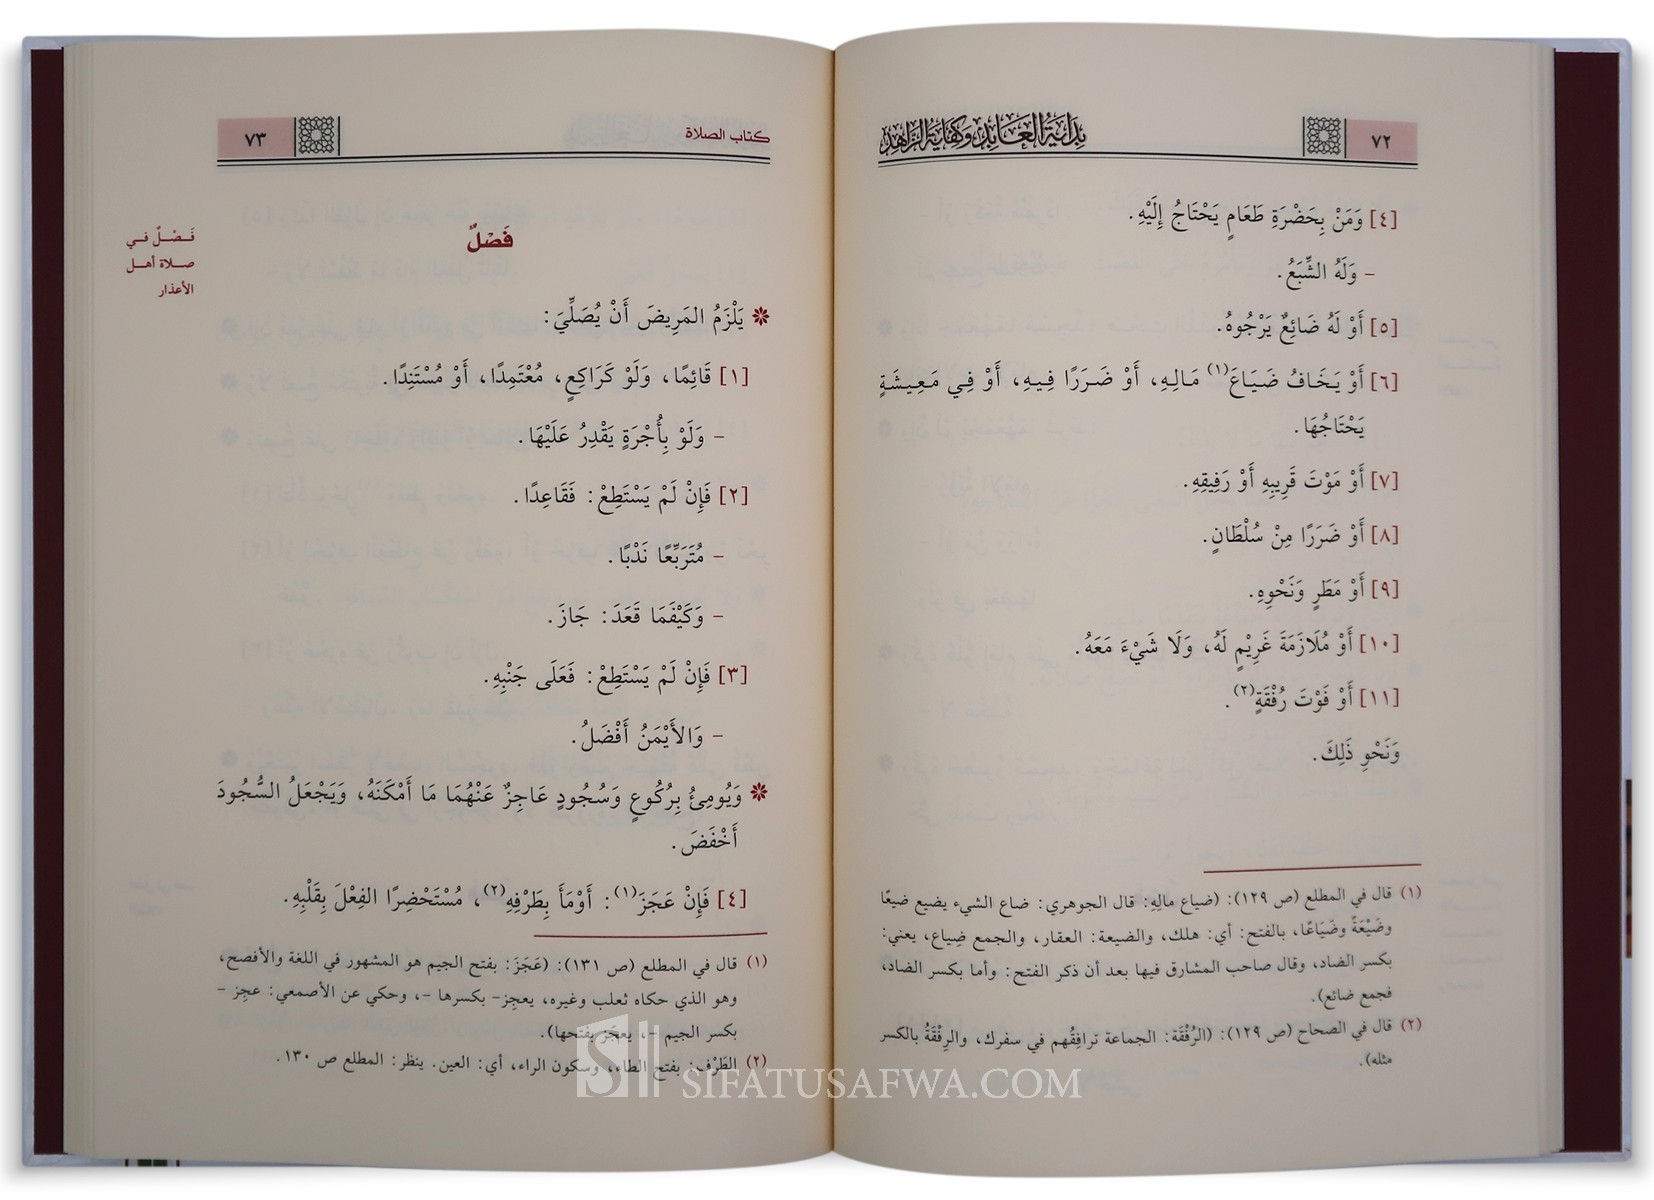 ٧٢
بداية العابد وكفاية الزاهد
[٤] وَمَنْ بِحَضْرَةِ طَعَامٍ يَحْتَاجُ إِلَيْهِ.
- وَلَهُ الشِّبَعُ.
[٥] أَوْ لَهُ ضَائِعٌ يَرْجُوهُ.
[٦] أَوْ يَخَافُ ضَيَاعَ(١) مَالِهِ، أَوْ ضَرَرًا فِيهِ، أَوْ فِي مَعِيشَةٍ
يَحْتَاجُهَا.
[٧] أَوْ مَوْتَ قَرِيبِهِ أَوْ رَفِيقِهِ.
[٨] أَوْ ضَرَرًا مِنْ سُلْطَانٍ.
[٩] أَوْ مَطَرٍ وَنَحْوِهِ.
[١٠] أَوْ مُلَازَمَةَ غَرِيْمٍ لَهُ، وَلَا شَيْءَ مَعَهُ.
[١١] أَوْ فَوْتَ رُفْقَةٍ(٢).
وَنَحْوِ ذَلِكَ.
(١) قال في المطلع (ص ١٢٩): (ضياع مالِهِ: قال الجوهري: ضاع الشيء يضيع ضيعًا
وضَيْعَةً وضَيَاعًا، بالفتح: أي: هلك، والضيعة: العقار، والجمع ضِياع، يعني:
بكسر الضاد، وقال صاحب المشارق فيها بعد أن ذكر الفتح: وأما بكسر الضاد،
فجمع ضائع).
(٢) قال في الصحاح (ص ١٢٩): (الرُفْقَة: الجماعة ترافِقُهم في سفرك، والرِفْقَةُ بالكسر
مثله).
كتاب الصلاة
٧٣
فَصْلٌ في
صلاة أهل
الأعذار
فَصْلٌ
❋ يَلْزَمُ المَرِيضَ أَنْ يُصَلِّيَ:
[١] قَائِمًا، وَلَوْ كَرَاكِعٍ، مُعْتَمِدًا، أَوْ مُسْتَنِدًا.
- وَلَوْ بِأُجْرَةٍ يَقْدِرُ عَلَيْهَا.
[٢] فَإِنْ لَمْ يَسْتَطِعْ: فَقَاعِدًا.
- مُتَرَبِّعًا نَدْبًا.
- وَكَيْفَمَا قَعَدَ: جَازَ.
[٣] فَإِنْ لَمْ يَسْتَطِعْ: فَعَلَى جَنْبِهِ.
- وَالأَيْمَنُ أَفْضَلُ.
❋ وَيُومِئُ بِرُكُوعٍ وَسُجُودٍ عَاجِزٌ عَنْهُمَا مَا أَمْكَنَهُ، وَيَجْعَلُ السُّجُودَ
أَخْفَضَ.
[٤] فَإِنْ عَجَزَ(١): أَوْمَأَ بِطَرْفِهِ(٢)، مُسْتَحْضِرًا الفِعْلَ بِقَلْبِهِ.
(١) قال في المطلع (ص ١٣١): (عَجَزَ: بفتح الجيم هو المشهور في اللغة والأفصح،
وهو الذي حكاه ثعلب وغيره، يعجِز- بكسرها -، وحكي عن الأصمعي: عجِز -
بكسر الجيم -، يعجَز بفتحها).
(٢) الطَرْف: بفتح الطاء، وسكون الراء، أي: العين. ينظر: المطلع ص ١٣٠.
SIFATUSAFWA.COM